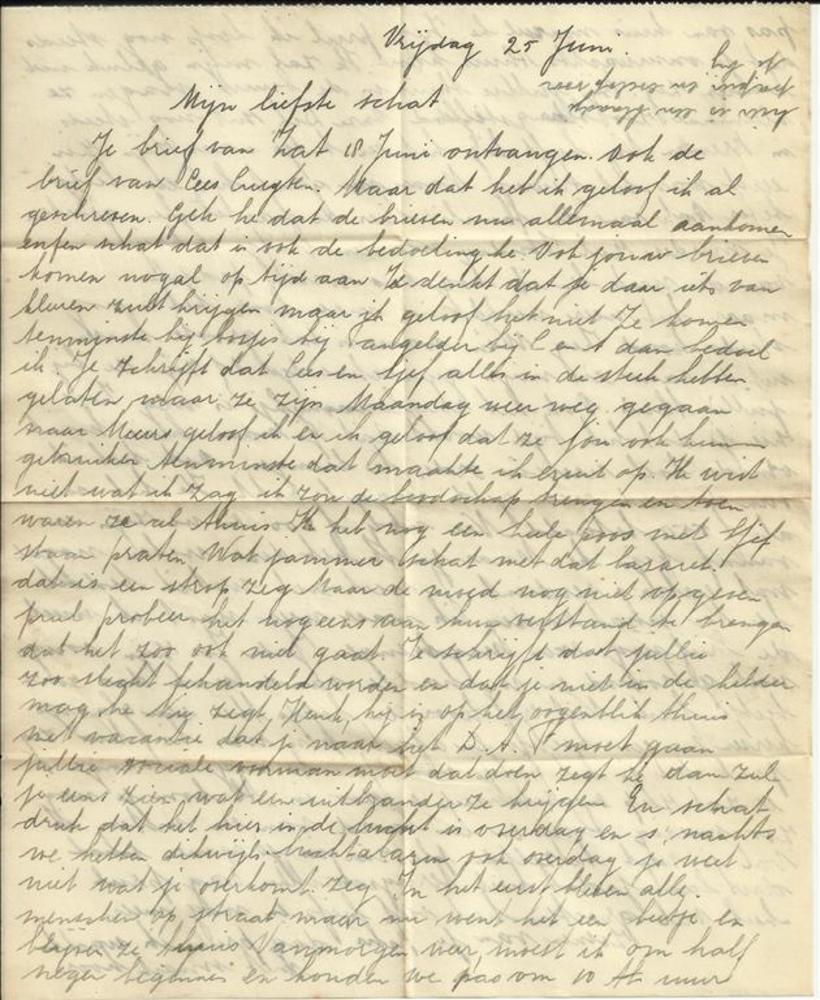 Vrijdag 25 Juni.
Mijn liefste schat
Je brief van Zat 18 Juni ontvangen. Ook de
brief van Cees Maar dat heb ik geloof ik al
geschreven. Gek he dat de brieven nu allemaal aankomen
enfin schat dat is ook de bedoeling he. Ook jouw brieven
komen nogal op tijd aan Je denkt dat je daar iets van
kleren zult krijgen maar ik geloof het niet Ze komen
tenminste bij bosjes bij bij C en t dan bedoel
ik. Je schrijft dat Cees en Sjef alles in de steek hebben
gelaten maar ze zijn Maandag weer weg gegaan
naar Meurs geloof ik en ik geloof dat ze jou ook kunnen
gebruiken tenminste dat maakte ik eruit op. Ik wist
niet wat ik zag ik zou de boodschap brengen en toen
waren ze al thuis Ik heb nog een heele poos met Sjef
staan praten Wat jammer schat met dat lazaret.
dat is een strop zeg Maar de moed nog niet opgeven
prul probeer het nog eens aan hun verstand te brengen
dat het zoo ook niet gaat. Je schrijft dat jullie
zoo slecht behandeld worden en dat je niet in de kelder
mag he Nu zegt Henk, hij is op het oogenblik thuis
met vacantie dat je naar het D.A.F moet gaan
jullie sociale voorman moet dat doen zegt he dan zul
je eens zien wat een uitbrander ze krijgen En schat
druk dat het hier in de lucht is overdag en s, nachts
we hebben dikwijls luchtalarm ook overdag je weet
niet wat je overkomt zeg. In het eerst bleven alle
menschen op straat maar nu went het een beetje en
blijven ze thuis Vanmorgen weer, moest ik om half
negen beginnen en konden we pas om 10 uur